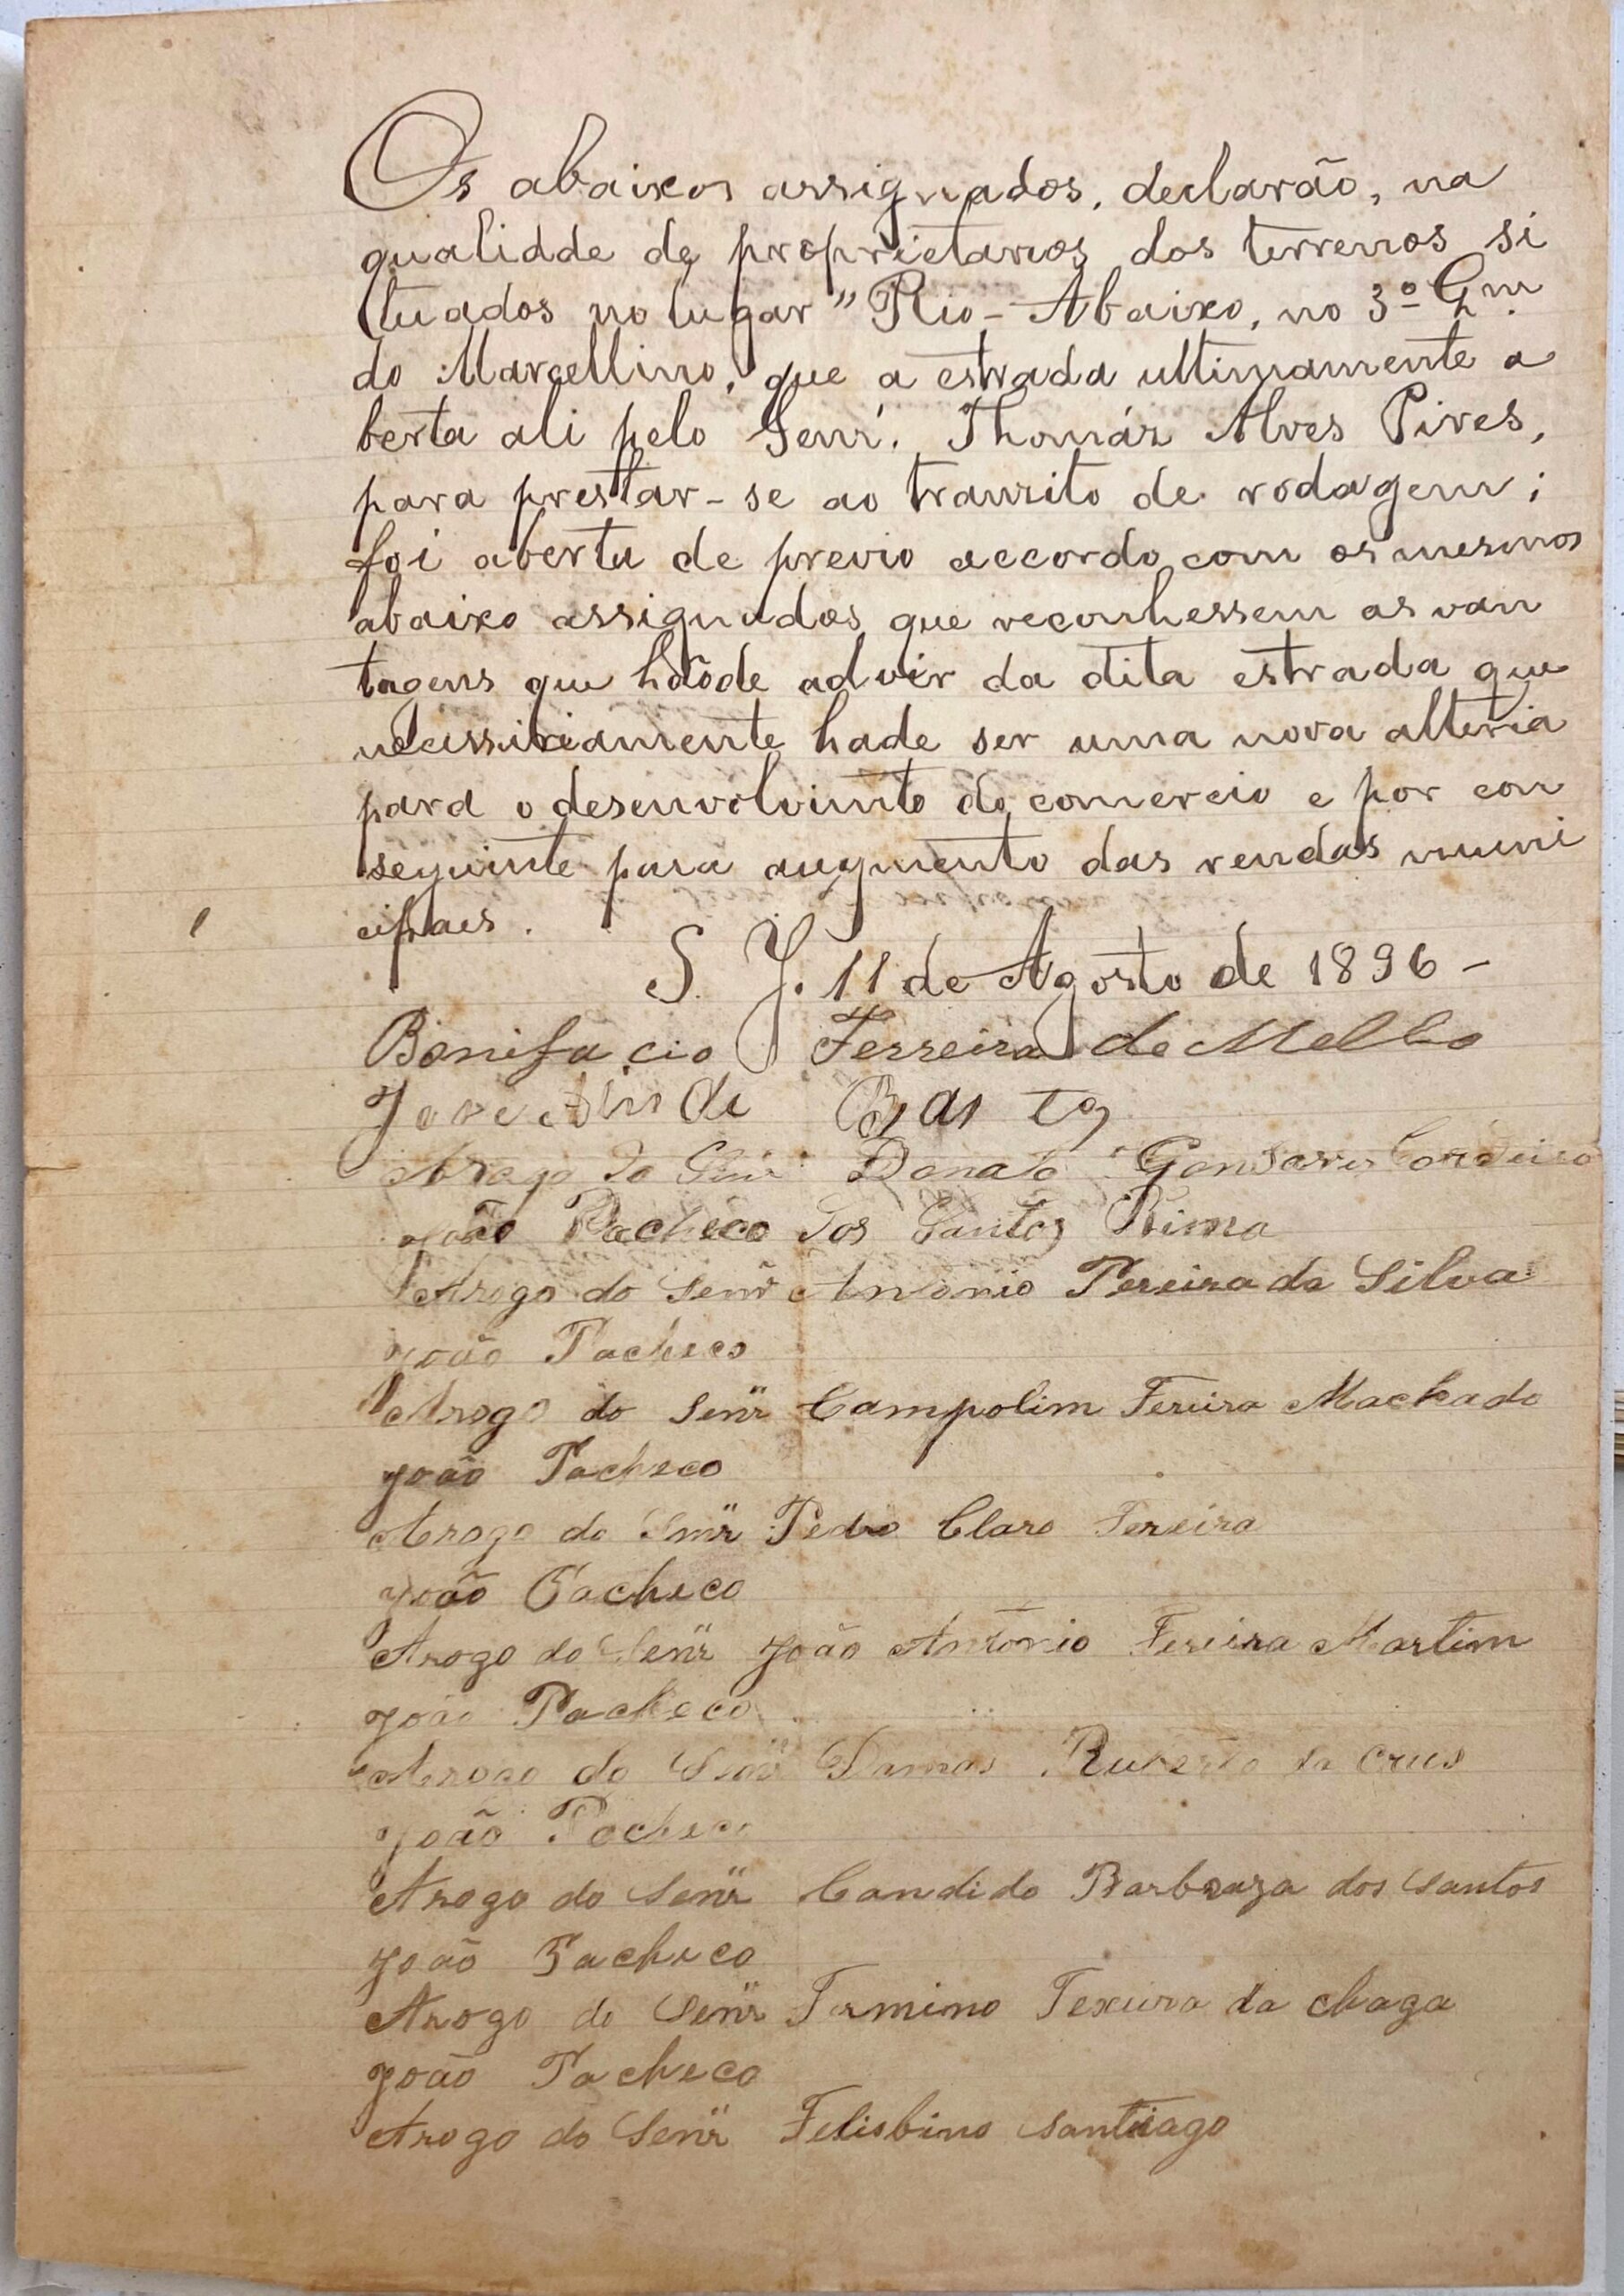 Os abaixos assignados, declarão, na
qualidde de proprietarios dos terrenos si
tuados no lugar "Rio-Abaixo, no 3º Qm.
do Marcellino, que a estrada ultimamente a
berta ali pelo Senr. Thomáz Alves Pires,
para prestar-se ao tranzito de rodagem;
foi aberta de previo accordo com os mesmos
abaixo assignados que reconhessem as van
tagens que hãode advir da dita estrada que
necessiriamente hade ser uma nova alteria
para o desenvolvimto do comercio e por con
seguinte para augmento das rendas muni
cipaes.
S. J. 11 de Agosto de 1896-
Bonifacio Ferreira de Mello
José de Bastos
Arogo do Senr Donato Gonsarves Cordeiro
João Pacheco dos Santos Rima
Arogo do Senr Antonio Pereira da Silva
João Pacheco
Arogo do Senr Campolim Fereira Machado
João Pacheco
Arogo do Senr Pedro Claro Fereira
João Pacheco
Arogo do Senr João Antonio Fereira Martim
João Pacheco
Arogo do Senr Damas Ruberto da Crus
João Pacheco
Arogo do Senr Candido Barboza dos Santos
João Pacheco
Arogo do Senr Firmino Texeira da Chaga
João Pacheco
Arogo do Senr Felisbino Santiago